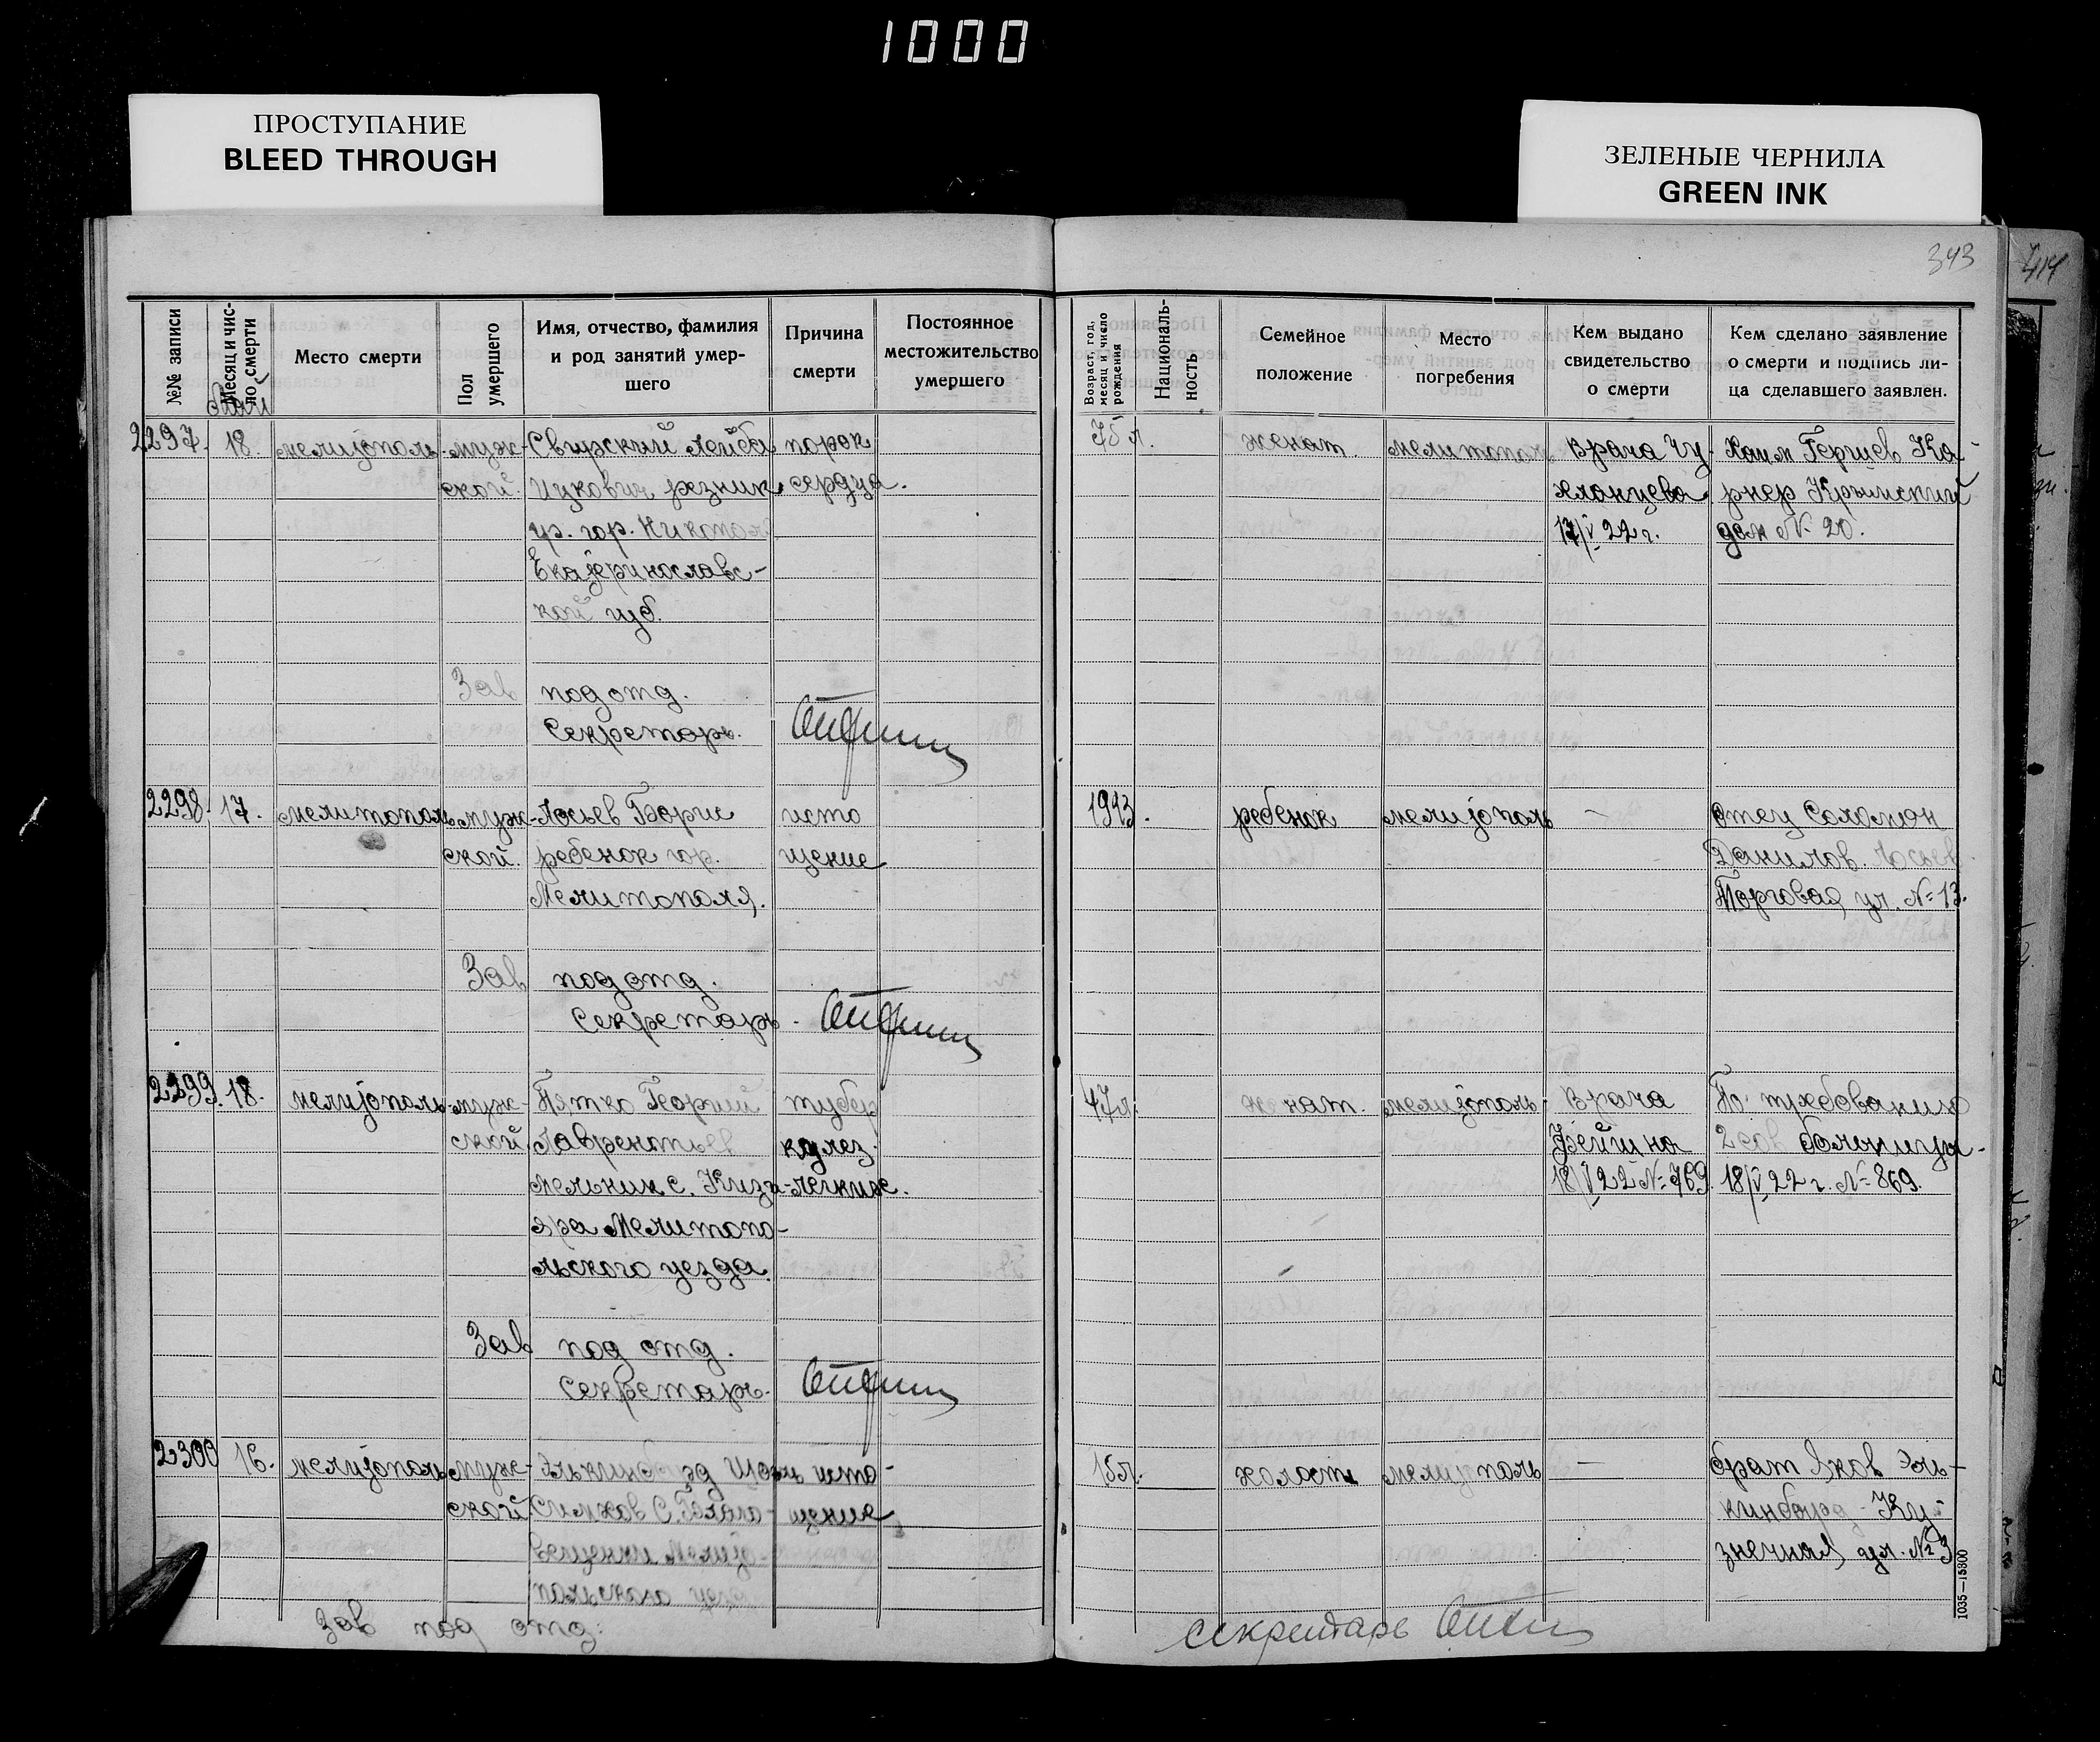 1000
ПРОСТУПАНИЕ
BLEED THROUGH
ЗЕЛЕНЫЕ ЧЕРНИЛА
GREEN INK
343
414
№№ записи
Месяц и чис-
ло смерти
Место смерти
Пол
умершего
Имя, отчество, фамилия
и род занятий умер-
шего
Причина
смерти
Постоянное
местожительство
умершего
Возраст, год,
месяц и число
рождения
Националь-
ность
Семейное
положение
Место
погребения
Кем выдано
свидетельство
о смерти
Кем сделано заявление
о смерти и подпись ли-
ца сделавшего заявлен.
Май
2297. 18. мелитополь муж- Свирский Лейба порок 75 л. женат. мелитополь врача Чу- Хаим Гершев Ка-
ской. Ицкович резник сердца. хланцева рнер Крымский
ур. гор. Никополя 17/V 22 г. дом № 20.
Екатеринославс-
кой губ.
Зав подотд.
Секретарь.
2298. 17. мелитополь муж- Лосьев Борис исто 1913. ребенок мелитополь — отец Соломон
ской. ребенок гор. щение Данилов. Лосьев.
Мелитополя. Торговая ул. № 13.
Зав подотд.
Секретарь.
2299. 18. мелитополь муж- Пятко Георгий тубер 47 л. женат. мелитополь врача По требованию
ской Лаврентьев кулез. Фейгина 2 сов больницы.
мельник с. Кизи- легких. 18/V 22 № 769. 18/V 22 г. № 869.
яра Мелитопо-
льского уезда.
Зав под отд.
Секретарь.
2300 16. мелитополь муж- исто- 15 л. холост мелитополь — брат Яков Эль-
ской Симхов С. щение кинборд Ку-
Мелито- знечная ул. № 3
польского уезд
Зав под отд.
секретарь
1035—15800